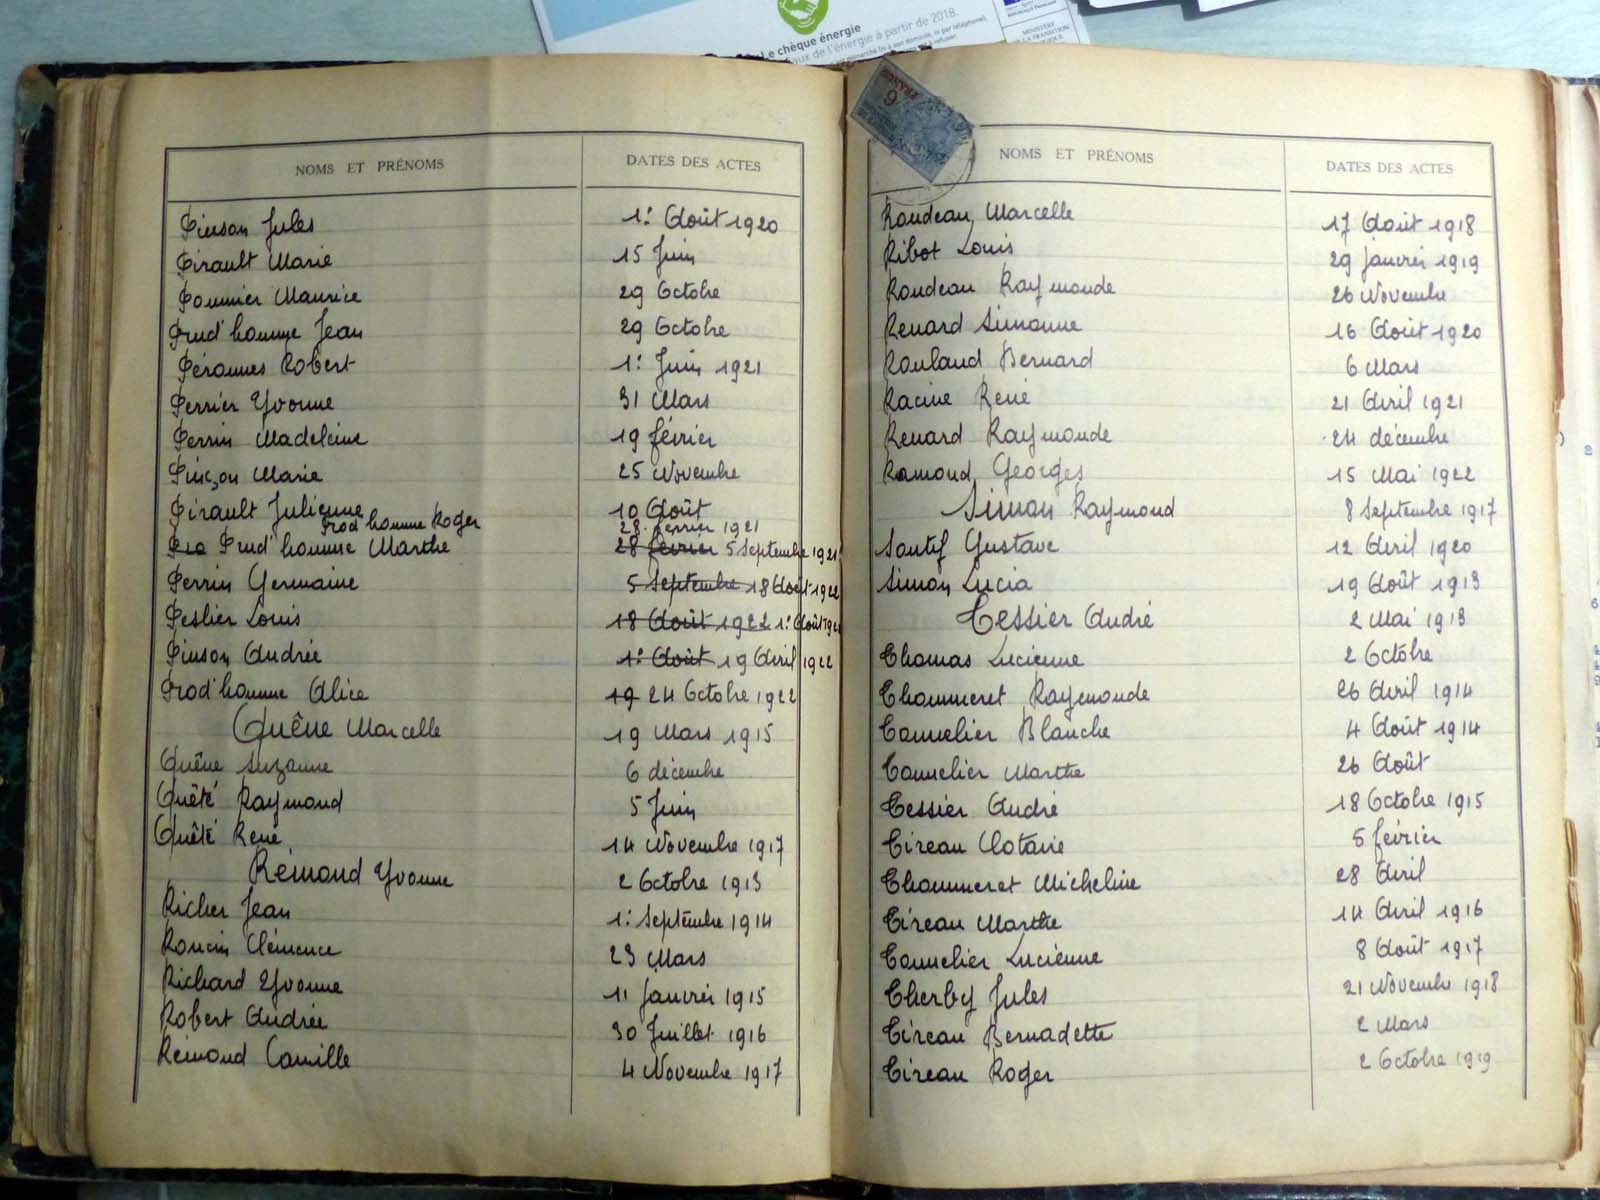 Le chèque énergie
aux de l'énergie à partir de 2018.
NOMS ET PRÉNOMS DATES DES ACTES
Pinson Jules 1: Août 1920
Pirault Marie 15 Juin
Pommier Maurice 29 Octobre
Prud'homme Jean 29 Octobre
Péronnes Robert 1: Juin 1921
Perrier Yvonne 31 Mars
Perrin Madeleine 19 février
Pinçon Marie 25 Novembre
Pirault Julienne 10 Août
Prod'homme Roger 28 février 1921
Pro Prud'homme Marthe 28 février 5 Septembre 1921
Perrin Germaine 5 Septembre 18 Août 1922
Peslier Louis 18 Août 1922 1: Août 192
Pinson Andrée 1: Août 19 Avril 1922
Prod'homme Alice 19 24 Octobre 1922
Quêne Marcelle 19 Mars 1915
Quêne Suzanne 6 décembre
Quêté Raymond 5 Juin
Quêté René 14 Novembre 1917
Rémond Yvonne 2 Octobre 1913
Richer Jean 1: Septembre 1914
Roncin Clémence 23 Mars
Richard Yvonne 11 Janvier 1915
Robert Andrée 30 Juillet 1916
Rémond Camille 4 Novembre 1917
FRANCS
6
NOMS ET PRÉNOMS DATES DES ACTES
Rondeau Marcelle 17 Août 1918
Ribot Louis 29 Janvier 1919
Rondeau Raymonde 26 Novembre
Renard Simonne 16 Août 1920
Rouland Bernard 6 Mars
Racine René 21 Avril 1921
Renard Raymonde 24 décembre
Ramond Georges 15 Mai 1922
Simon Raymond 8 Septembre 1917
Soutif Gustave 12 Avril 1920
Simon Lucia 19 Août 1913
Tessier André 2 Mai 1913
Thomas Lucienne 2 Octobre
Thommeret Raymonde 26 Avril 1914
Tonnelier Blanche 4 Août 1914
Tonnelier Marthe 26 Août
Tessier André 18 Octobre 1915
Tireau Clotaire 5 février
Thommeret Micheline 28 Avril
Tireau Marthe 14 Avril 1916
Tonnelier Lucienne 8 Août 1917
Therby Jules 21 Novembre 1918
Tireau Bernadette 2 Mars
Tireau Roger 2 Octobre 1919